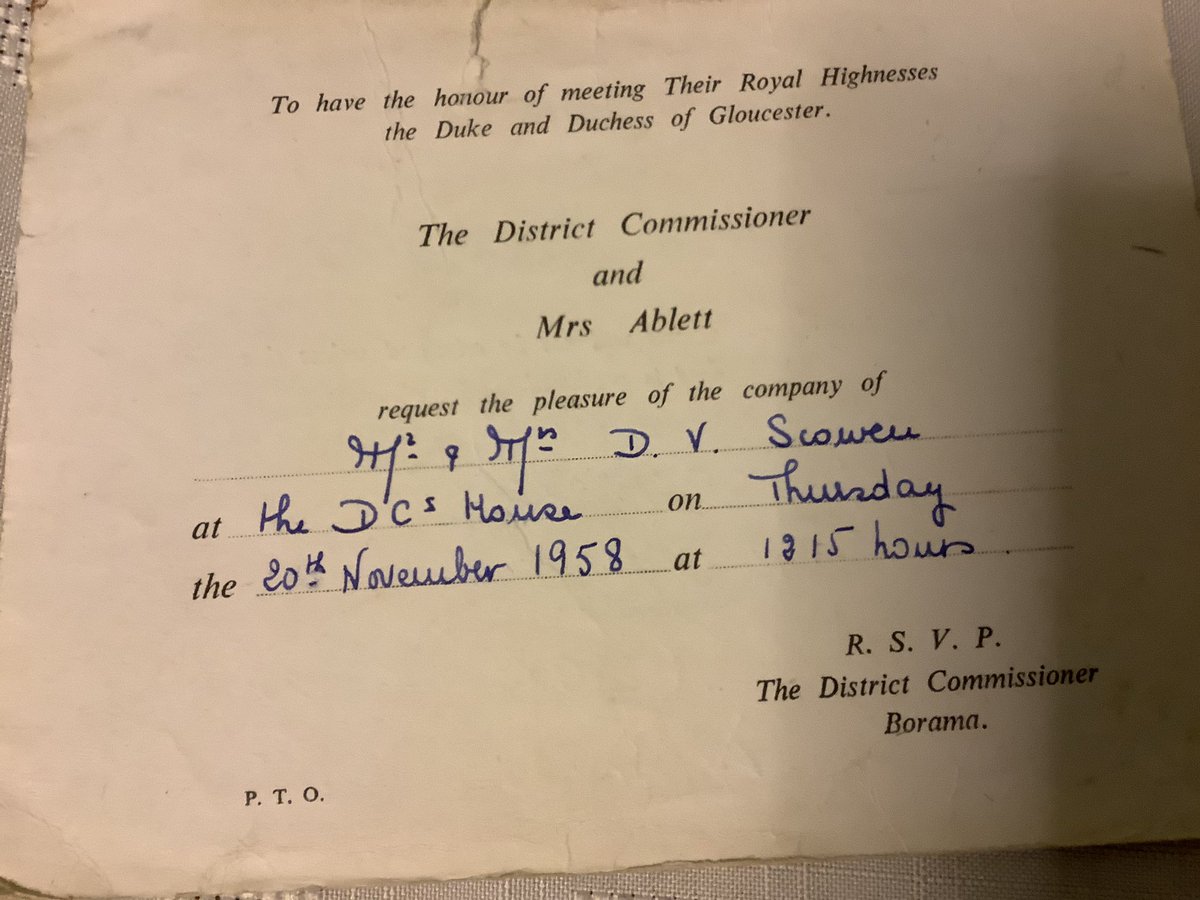 To have the honour of meeting Their Royal Highnesses
the Duke and Duchess of Gloucester.
The District Commissioner
and
Mrs Ablett
request the pleasure of the company of
Mr & Mrs D. V. Scowen
at the DCs House on Thursday
the 20th November 1958 at 1215 hours.
R. S. V. P.
The District Commissioner
Borama.
P. T. O.